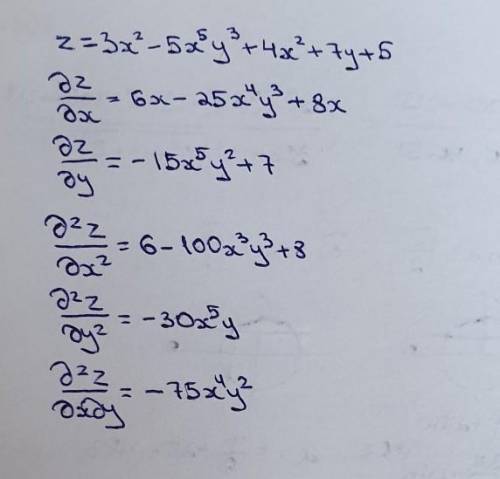 z = 3x² - 5x⁵y³ + 4x² + 7y + 5
∂z/∂x = 6x - 25x⁴y³ + 8x
∂z/∂y = -15x⁵y² + 7
∂²z/∂x² = 6 - 100x³y³ + 8
∂²z/∂y² = -30x⁵y
∂²z/∂x∂y = -75x⁴y²